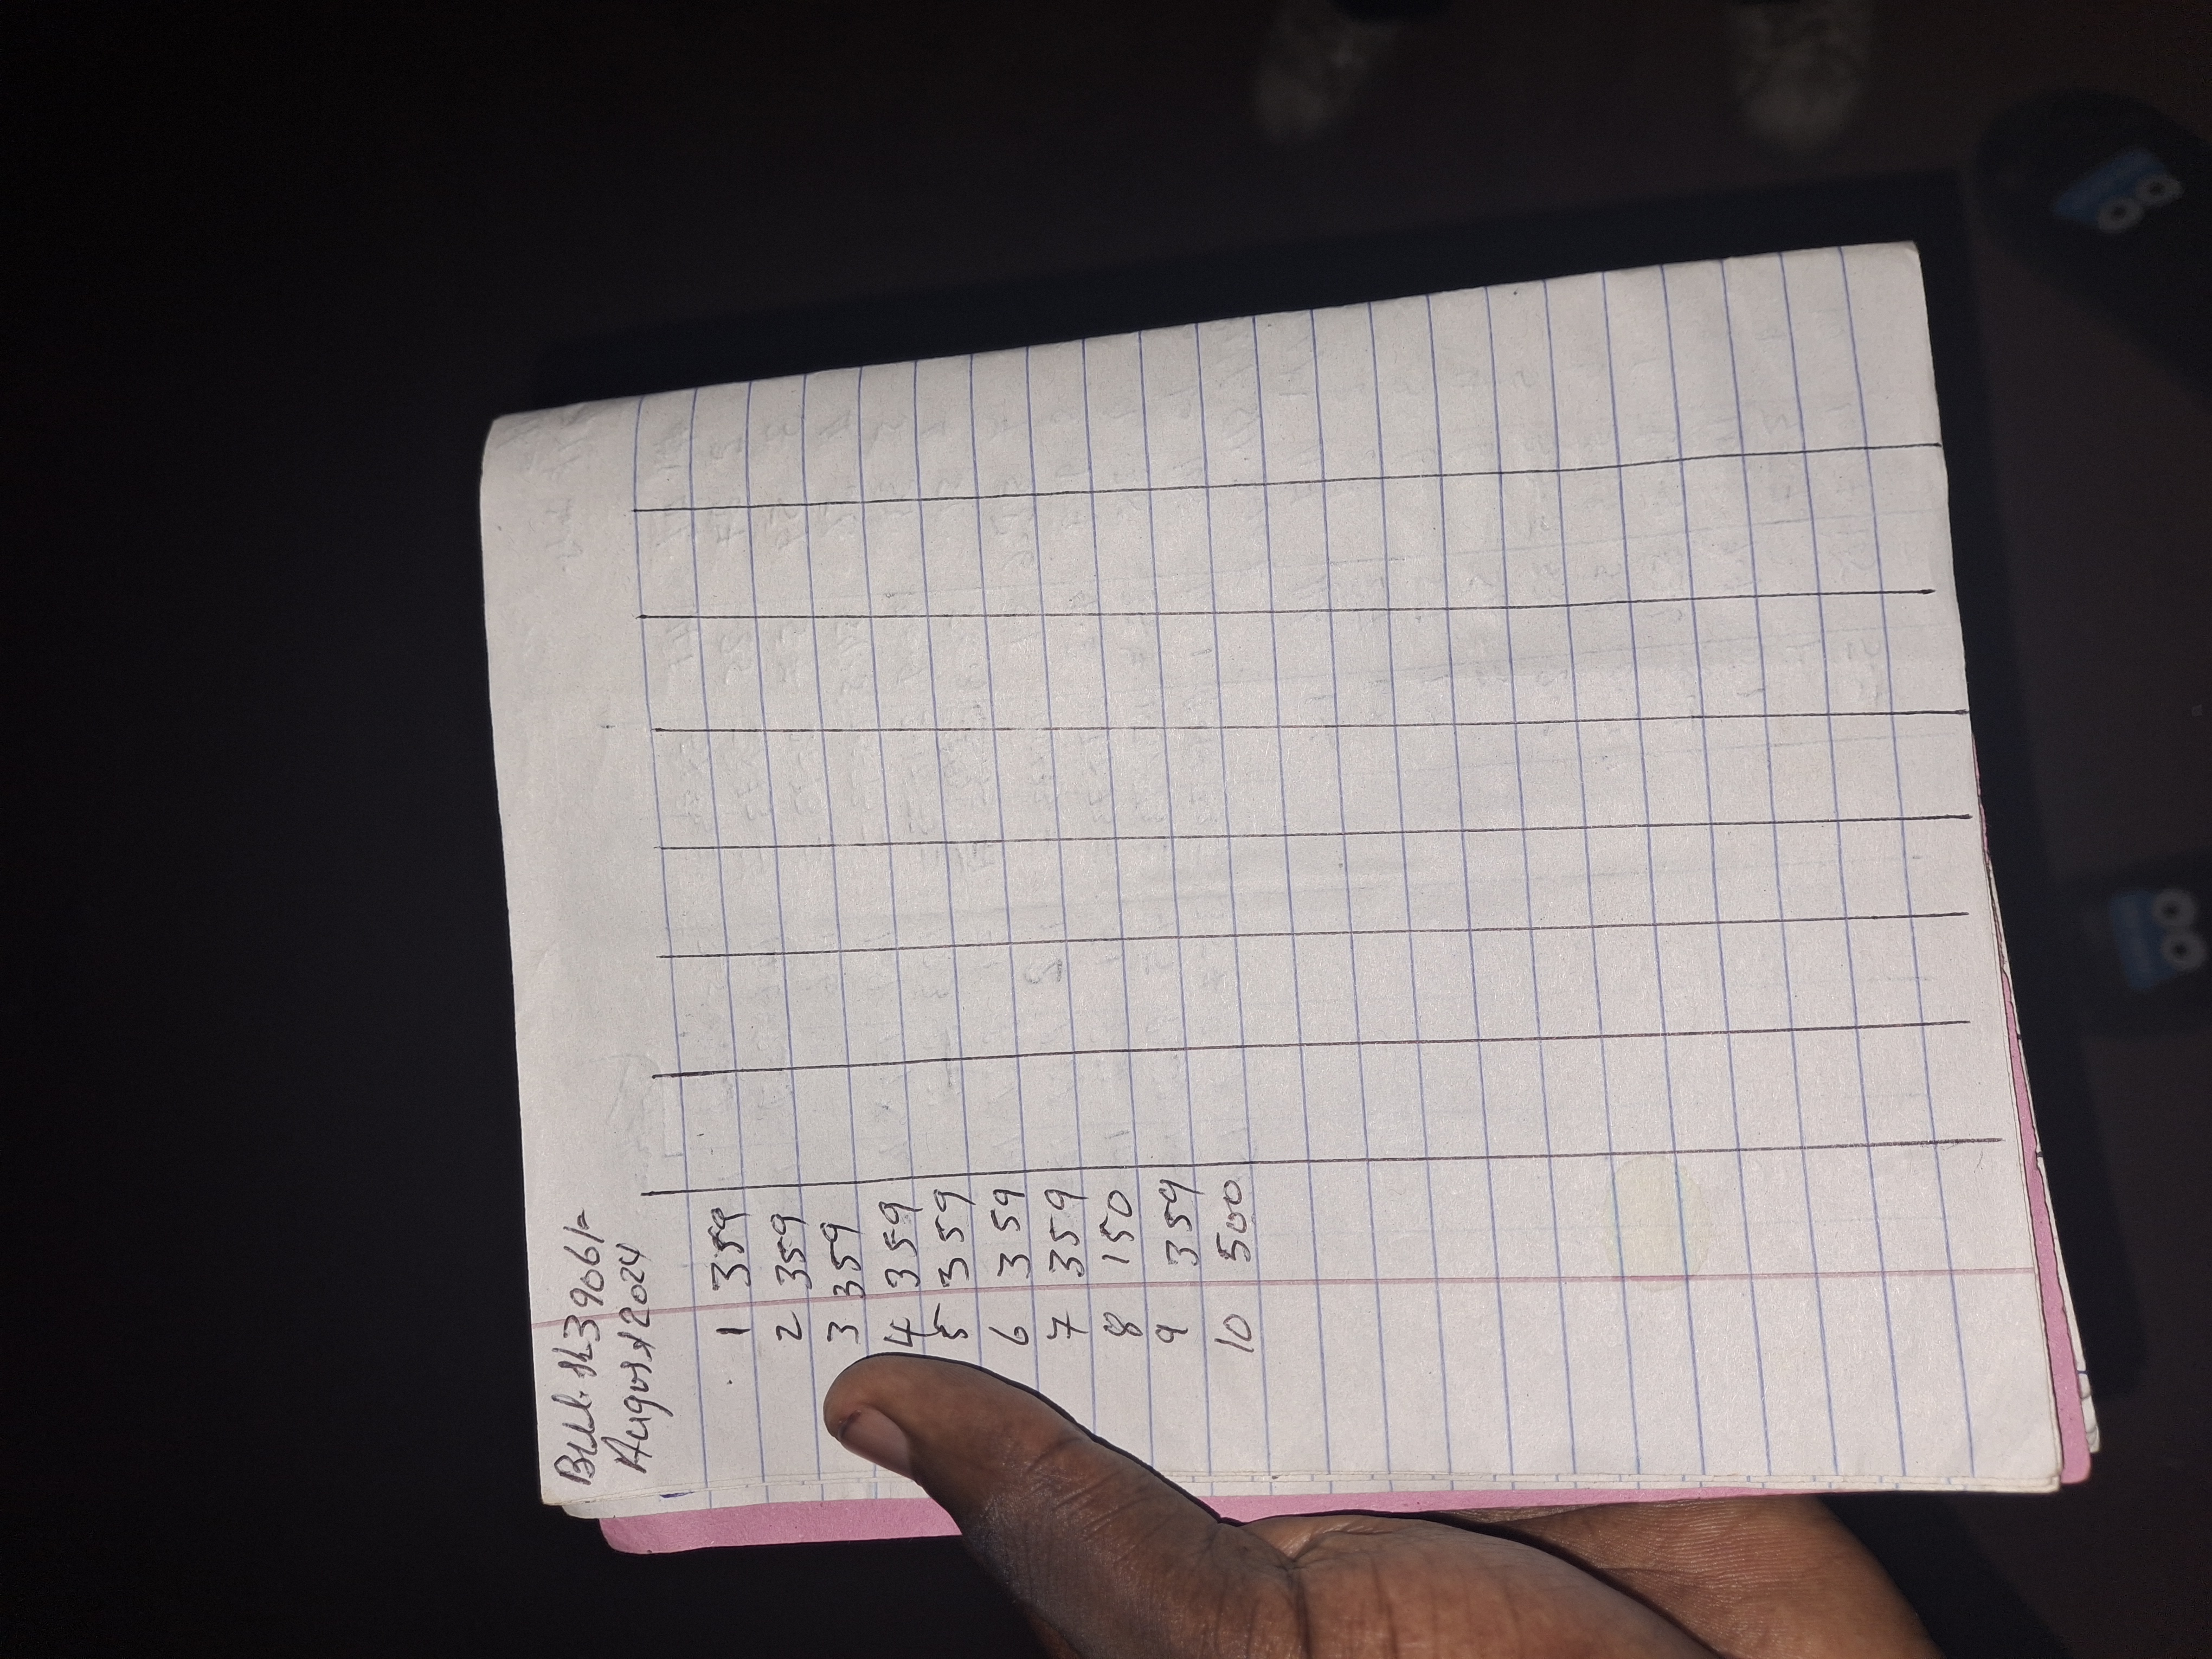 Bill. sh 3906/=
August 2024
1 359
2 359
3 359
4 359
5 359
6 359
7 359
8 150
9 359
10 500